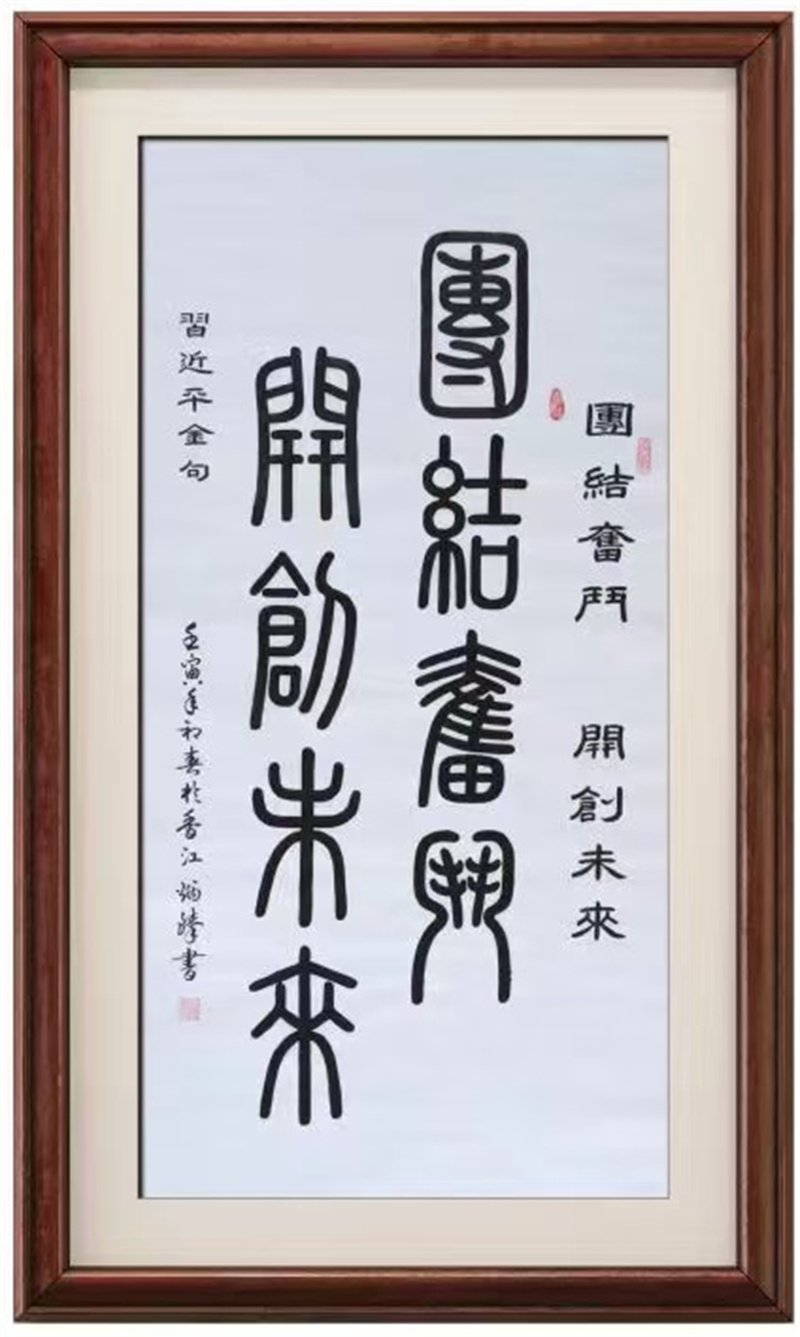 團結奮鬥 開創未來
團結奮鬥
開創未來
習近平金句
壬寅年初春於香江 炳騰書